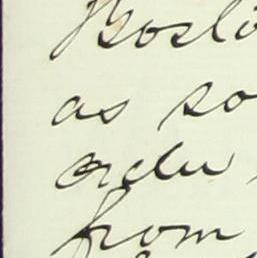 Bosto
as so
order
from